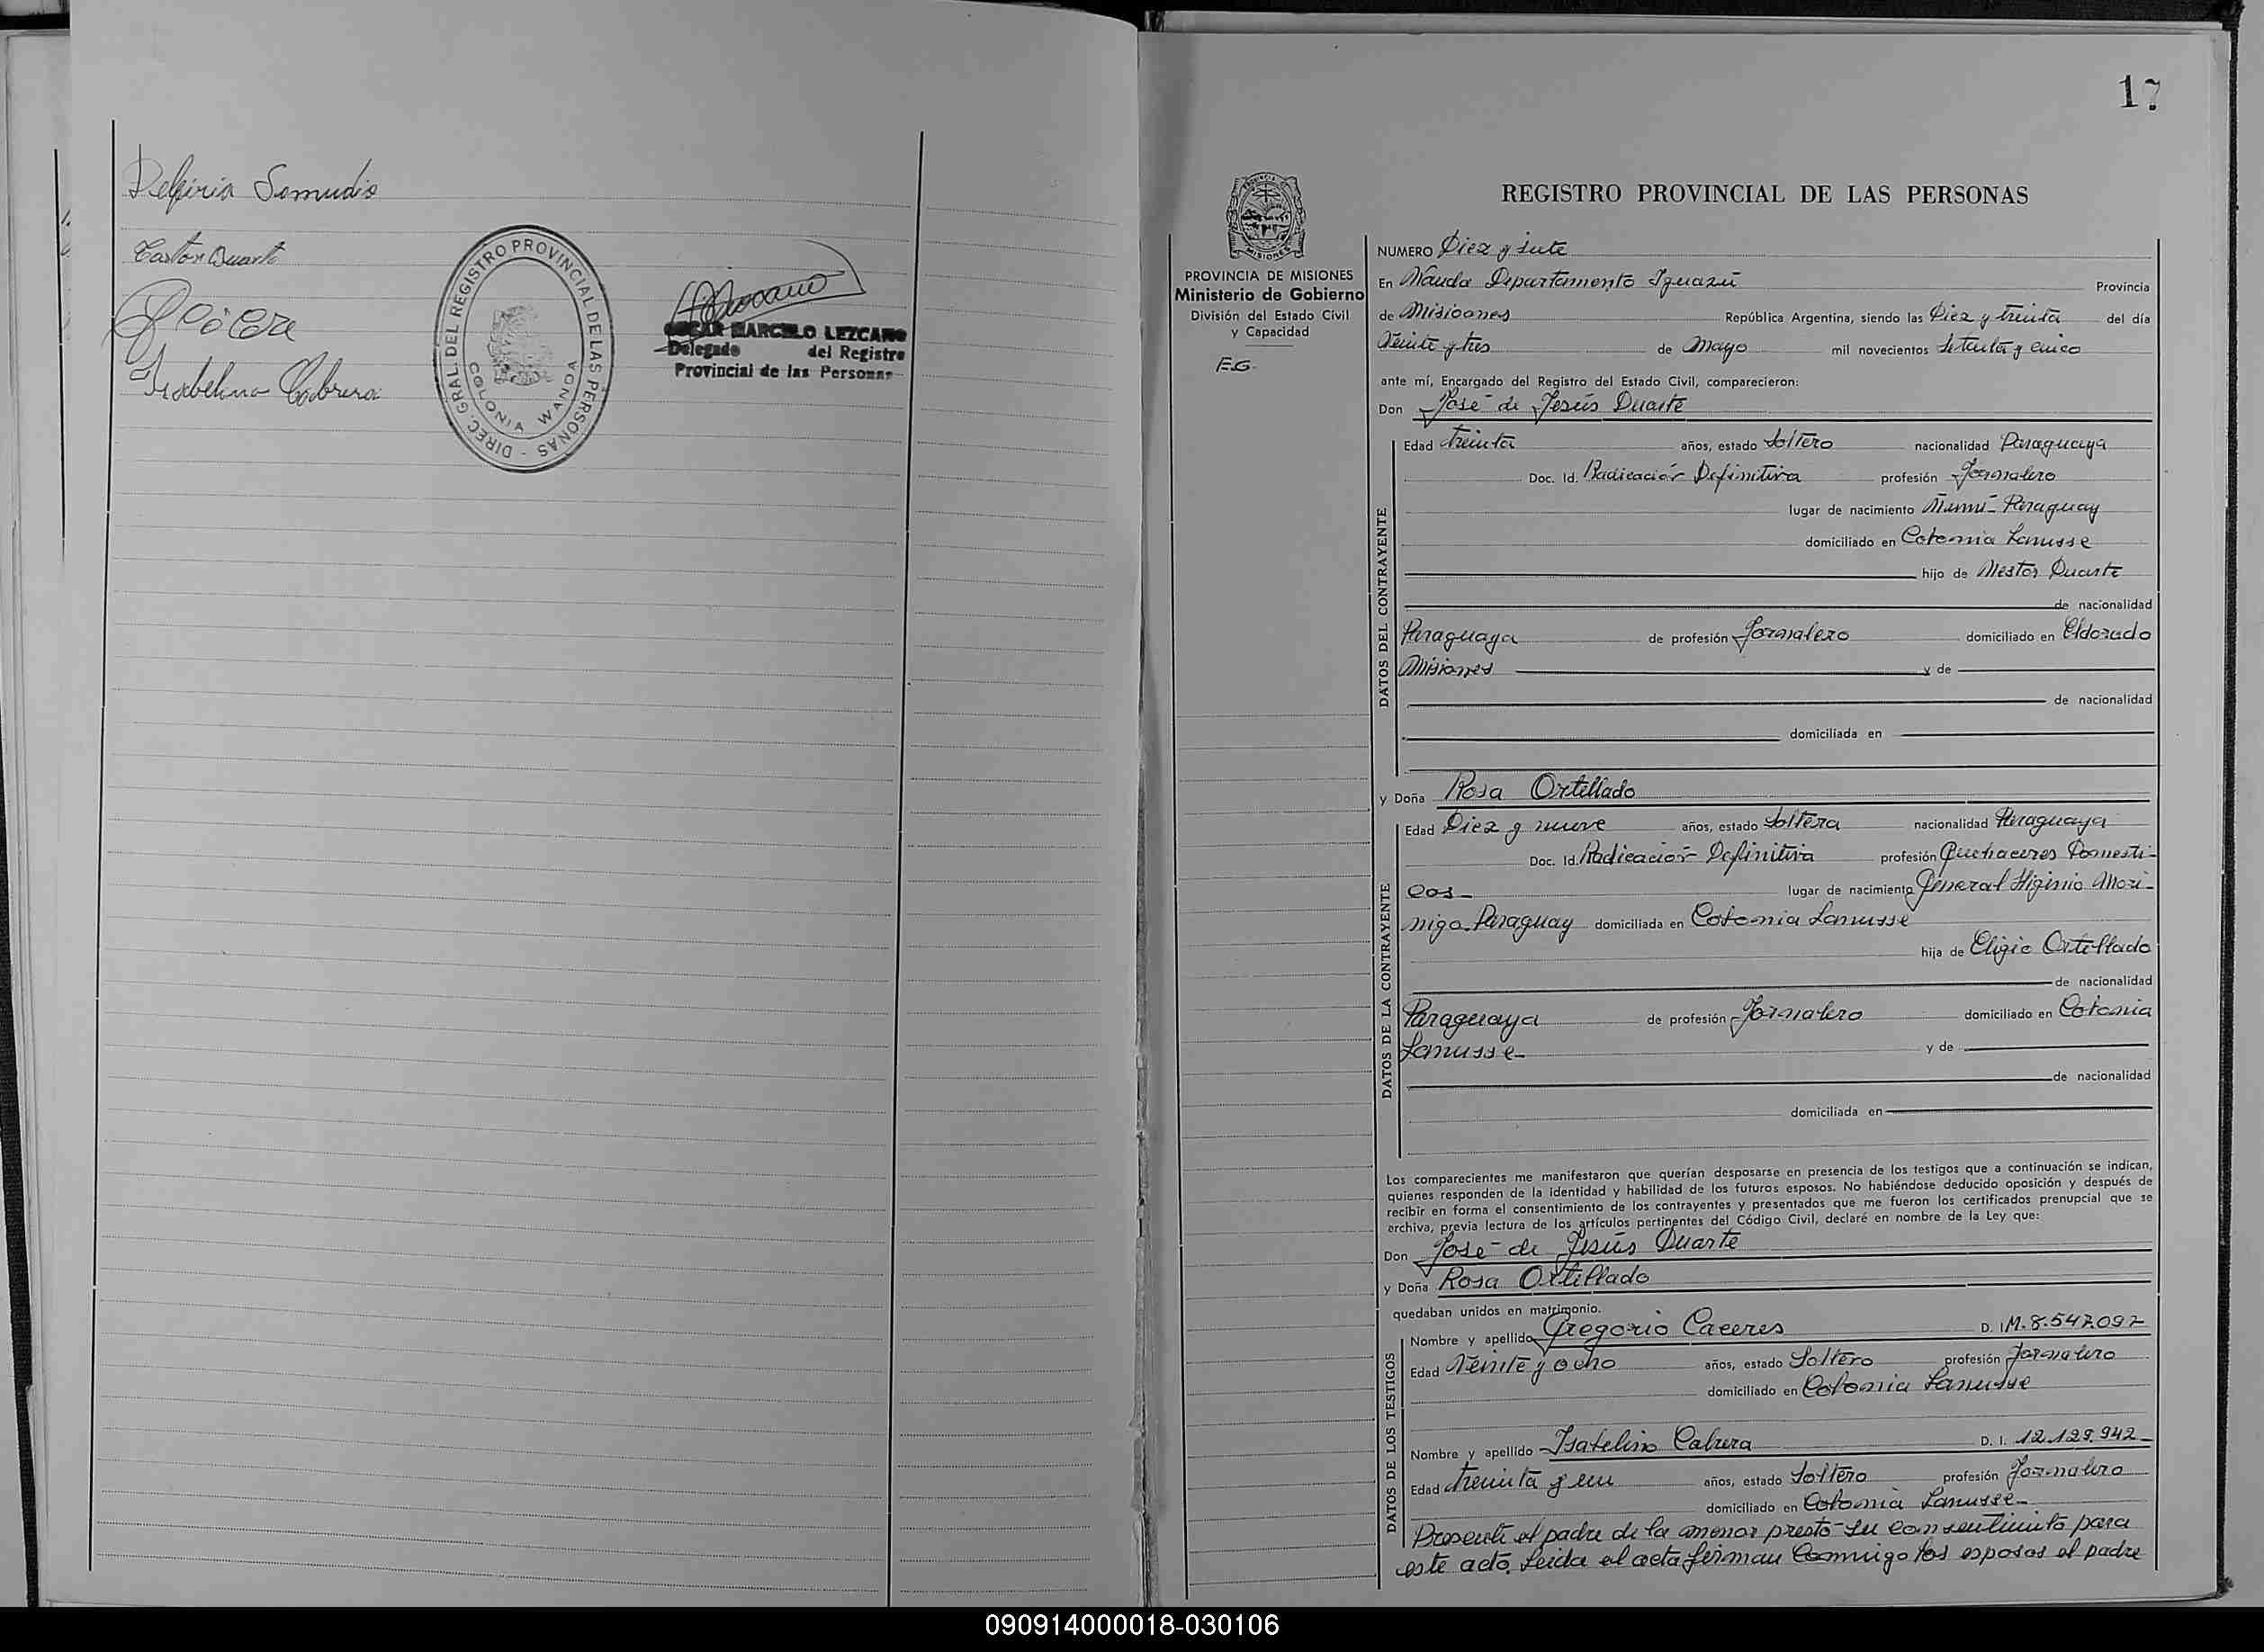 Delfiria Samudio
Castor Duarte
Isabelino Cabrera
DIREC. GRAL. DEL REGISTRO PROVINCIAL DE LAS PERSONAS -
COLONIA WANDA
OSCAR MARCELO LEZCANO
Delegado del Registro
Provincial de las Personas
17
REGISTRO PROVINCIAL DE LAS PERSONAS
PROVINCIA DE MISIONES
Ministerio de Gobierno
División del Estado Civil
y Capacidad
E.G.
NUMERO Diez y siete
En Wanda Departamento Iguazú Provincia
de Misiones República Argentina, siendo las Diez y treinta del día
Veinte y tres de Mayo mil novecientos setenta y cinco
ante mí, Encargado del Registro del Estado Civil, comparecieron:
Don José de Jesús Duarte
DATOS DEL CONTRAYENTE
Edad treinta años, estado Soltero nacionalidad Paraguaya
Doc. Id. Radicación Definitiva profesión Jornalero
lugar de nacimiento Ñumí - Paraguay
domiciliado en Colonia Lanusse
hijo de Nestor Duarte
de nacionalidad
Paraguaya de profesión Jornalero domiciliado en Eldorado
Misiones y de
de nacionalidad
domiciliada en
y Doña Rosa Ortellado
DATOS DE LA CONTRAYENTE
Edad Diez y nueve años, estado Soltera nacionalidad Paraguaya
Doc. Id. Radicación Definitiva profesión Quehaceres Domesti-
cos - lugar de nacimiento General Higinio Mori-
nigo - Paraguay domiciliada en Colonia Lanusse
hija de Eligio Ortellado
de nacionalidad
Paraguaya de profesión Jornalero domiciliado en Colonia
Lanusse - y de
de nacionalidad
domiciliada en
Los comparecientes me manifestaron que querían desposarse en presencia de los testigos que a continuación se indican,
quienes responden de la identidad y habilidad de los futuros esposos. No habiéndose deducido oposición y después de
recibir en forma el consentimiento de los contrayentes y presentados que me fueron los certificados prenupcial que se
archiva, previa lectura de los artículos pertinentes del Código Civil, declaré en nombre de la Ley que:
Don José de Jesús Duarte
y Doña Rosa Ortellado
quedaban unidos en matrimonio.
DATOS DE LOS TESTIGOS
Nombre y apellido Gregorio Caceres D. I. M. 8.547.092
Edad Veinte y ocho años, estado Soltero profesión Jornalero
domiciliado en Colonia Lanusse
Nombre y apellido Isabelino Cabrera D. I. 12.129.942 -
Edad treinta y un años, estado Soltero profesión Jornalero
domiciliado en Colonia Lanusse -
Presente el padre de la menor prestó su consentimiento para
este acto. Leida el acta firman conmigo los esposos el padre
090914000018-030106